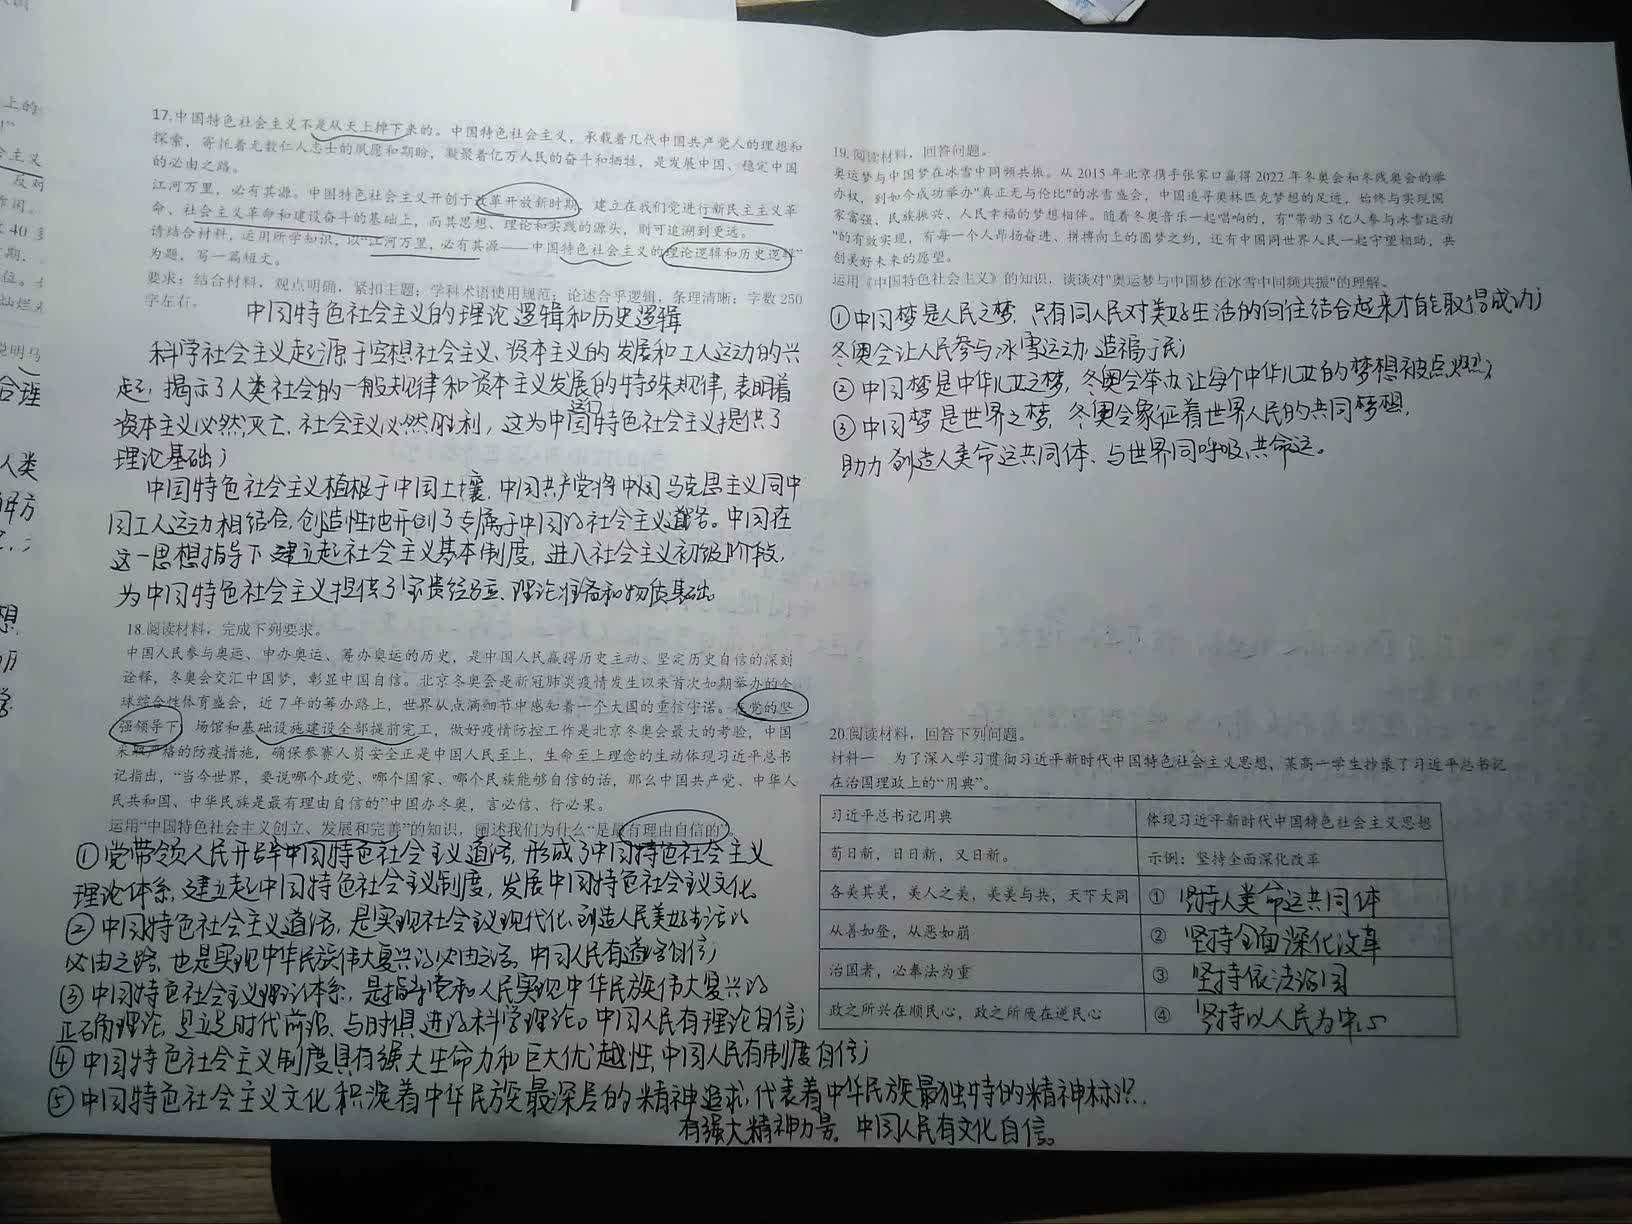 上的
会主义
反对
作用。
40多
期.
位。
灿烂
说明马
合理
人类
解方
想
学
17.中国特色社会主义不是从天上掉下来的。中国特色社会主义，承载着几代中国共产党人的理想和
探索，寄托着无数仁人志士的夙愿和期盼，凝聚着亿万人民的奋斗和牺牲，是发展中国、稳定中国
的必由之路。
江河万里，必有其源。中国特色社会主义开创于改革开放新时期，建立在我们党进行新民主主义革
命、社会主义革命和建设奋斗的基础上，而其思想、理论和实践的源头，则可追溯到更远。
请结合材料，运用所学知识，以“江河万里，必有其源——中国特色社会主义的理论逻辑和历史逻辑”
为题，写一篇短文。
要求：结合材料，观点明确，紧扣主题；学科术语使用规范；论述合乎逻辑，条理清晰；字数250
字左右。
中国特色社会主义的理论逻辑和历史逻辑
科学社会主义起源于空想社会主义、资本主义的发展和工人运动的兴
起，揭示了人类社会的一般规律和资本主义发展的特殊规律，表明着
资本主义必然灭亡、社会主义必然胜利，这为中国特色社会主义提供了
理论基础；
中国特色社会主义植根于中国土壤，中国共产党将中国马克思主义同中
国工人运动相结合，创造性地开创了专属于中国的社会主义道路。中国在
这一思想指导下建立起社会主义基本制度，进入社会主义初级阶段，
为中国特色社会主义提供了宝贵经验、理论准备和物质基础。
18.阅读材料，完成下列要求。
中国人民参与奥运、申办奥运、筹办奥运的历史，是中国人民赢得历史主动、坚定历史自信的深刻
诠释，冬奥会交汇中国梦，彰显中国自信。北京冬奥会是新冠肺炎疫情发生以来首次如期举办的全
球综合性体育盛会，近7年的筹办路上，世界从点滴细节中感知着一个大国的重信守诺。在党的坚
强领导下，场馆和基础设施建设全部提前完工，做好疫情防控工作是北京冬奥会最大的考验，中国
采取严格的防疫措施，确保参赛人员安全正是中国人民至上、生命至上理念的生动体现习近平总书
记指出，“当今世界，要说哪个政党、哪个国家、哪个民族能够自信的话，那么中国共产党、中华人
民共和国、中华民族是最有理由自信的”中国办冬奥，言必信、行必果。
运用“中国特色社会主义创立、发展和完善”的知识，阐述我们为什么“是最有理由自信的”。
①党带领人民开辟中国特色社会主义道路，形成了中国特色社会主义
理论体系，建立起中国特色社会主义制度，发展中国特色社会主义文化。
②中国特色社会主义道路，是实现社会主义现代化、创造人民美好生活的
必由之路，也是实现中华民族伟大复兴的必由之路。中国人民有道路自信；
③中国特色社会主义理论体系，是指导党和人民实现中华民族伟大复兴的
正确理论，是立足时代前沿、与时俱进的科学理论。中国人民有理论自信；
④中国特色社会主义制度具有强大生命力和巨大优越性，中国人民有制度自信；
⑤中国特色社会主义文化积淀着中华民族最深层的精神追求，代表着中华民族最独特的精神标识，
有强大精神力量。中国人民有文化自信。
19.阅读材料，回答问题。
奥运梦与中国梦在冰雪中同频共振。从2015年北京携手张家口赢得2022年冬奥会和冬残奥会的举
办权，到如今成功举办"真正无与伦比"的冰雪盛会，中国追寻奥林匹克梦想的足迹，始终与实现国
家富强、民族振兴、人民幸福的梦想相伴。随着冬奥音乐一起唱响的，有"带动3亿人参与冰雪运动
"的有效实现，有每一个人昂扬奋进、拼搏向上的圆梦之约，还有中国同世界人民一起守望相助，共
创美好未来的愿望。
运用《中国特色社会主义》的知识，谈谈对"奥运梦与中国梦在冰雪中同频共振"的理解。
①中国梦是人民之梦，只有同人民对美好生活的向往结合起来才能取得成功；
冬奥会让人民参与冰雪运动，造福于民；
②中国梦是中华儿女之梦，冬奥会举办让每个中华儿女的梦想被点燃；
③中国梦是世界之梦，冬奥会象征着世界人民的共同梦想，
助力创造人类命运共同体、与世界同呼吸、共命运。
20.阅读材料，回答下列问题。
材料一 为了深入学习贯彻习近平新时代中国特色社会主义思想，某高一学生抄录了习近平总书记
在治国理政上的“用典”。
习近平总书记用典 体现习近平新时代中国特色社会主义思想
苟日新，日日新，又日新。 示例：坚持全面深化改革
各美其美，美人之美，美美与共，天下大同 ① 坚持人类命运共同体
从善如登，从恶如崩 ② 坚持全面深化改革
治国者，必奉法为重 ③ 坚持依法治国
政之所兴在顺民心，政之所废在逆民心 ④ 坚持以人民为中心